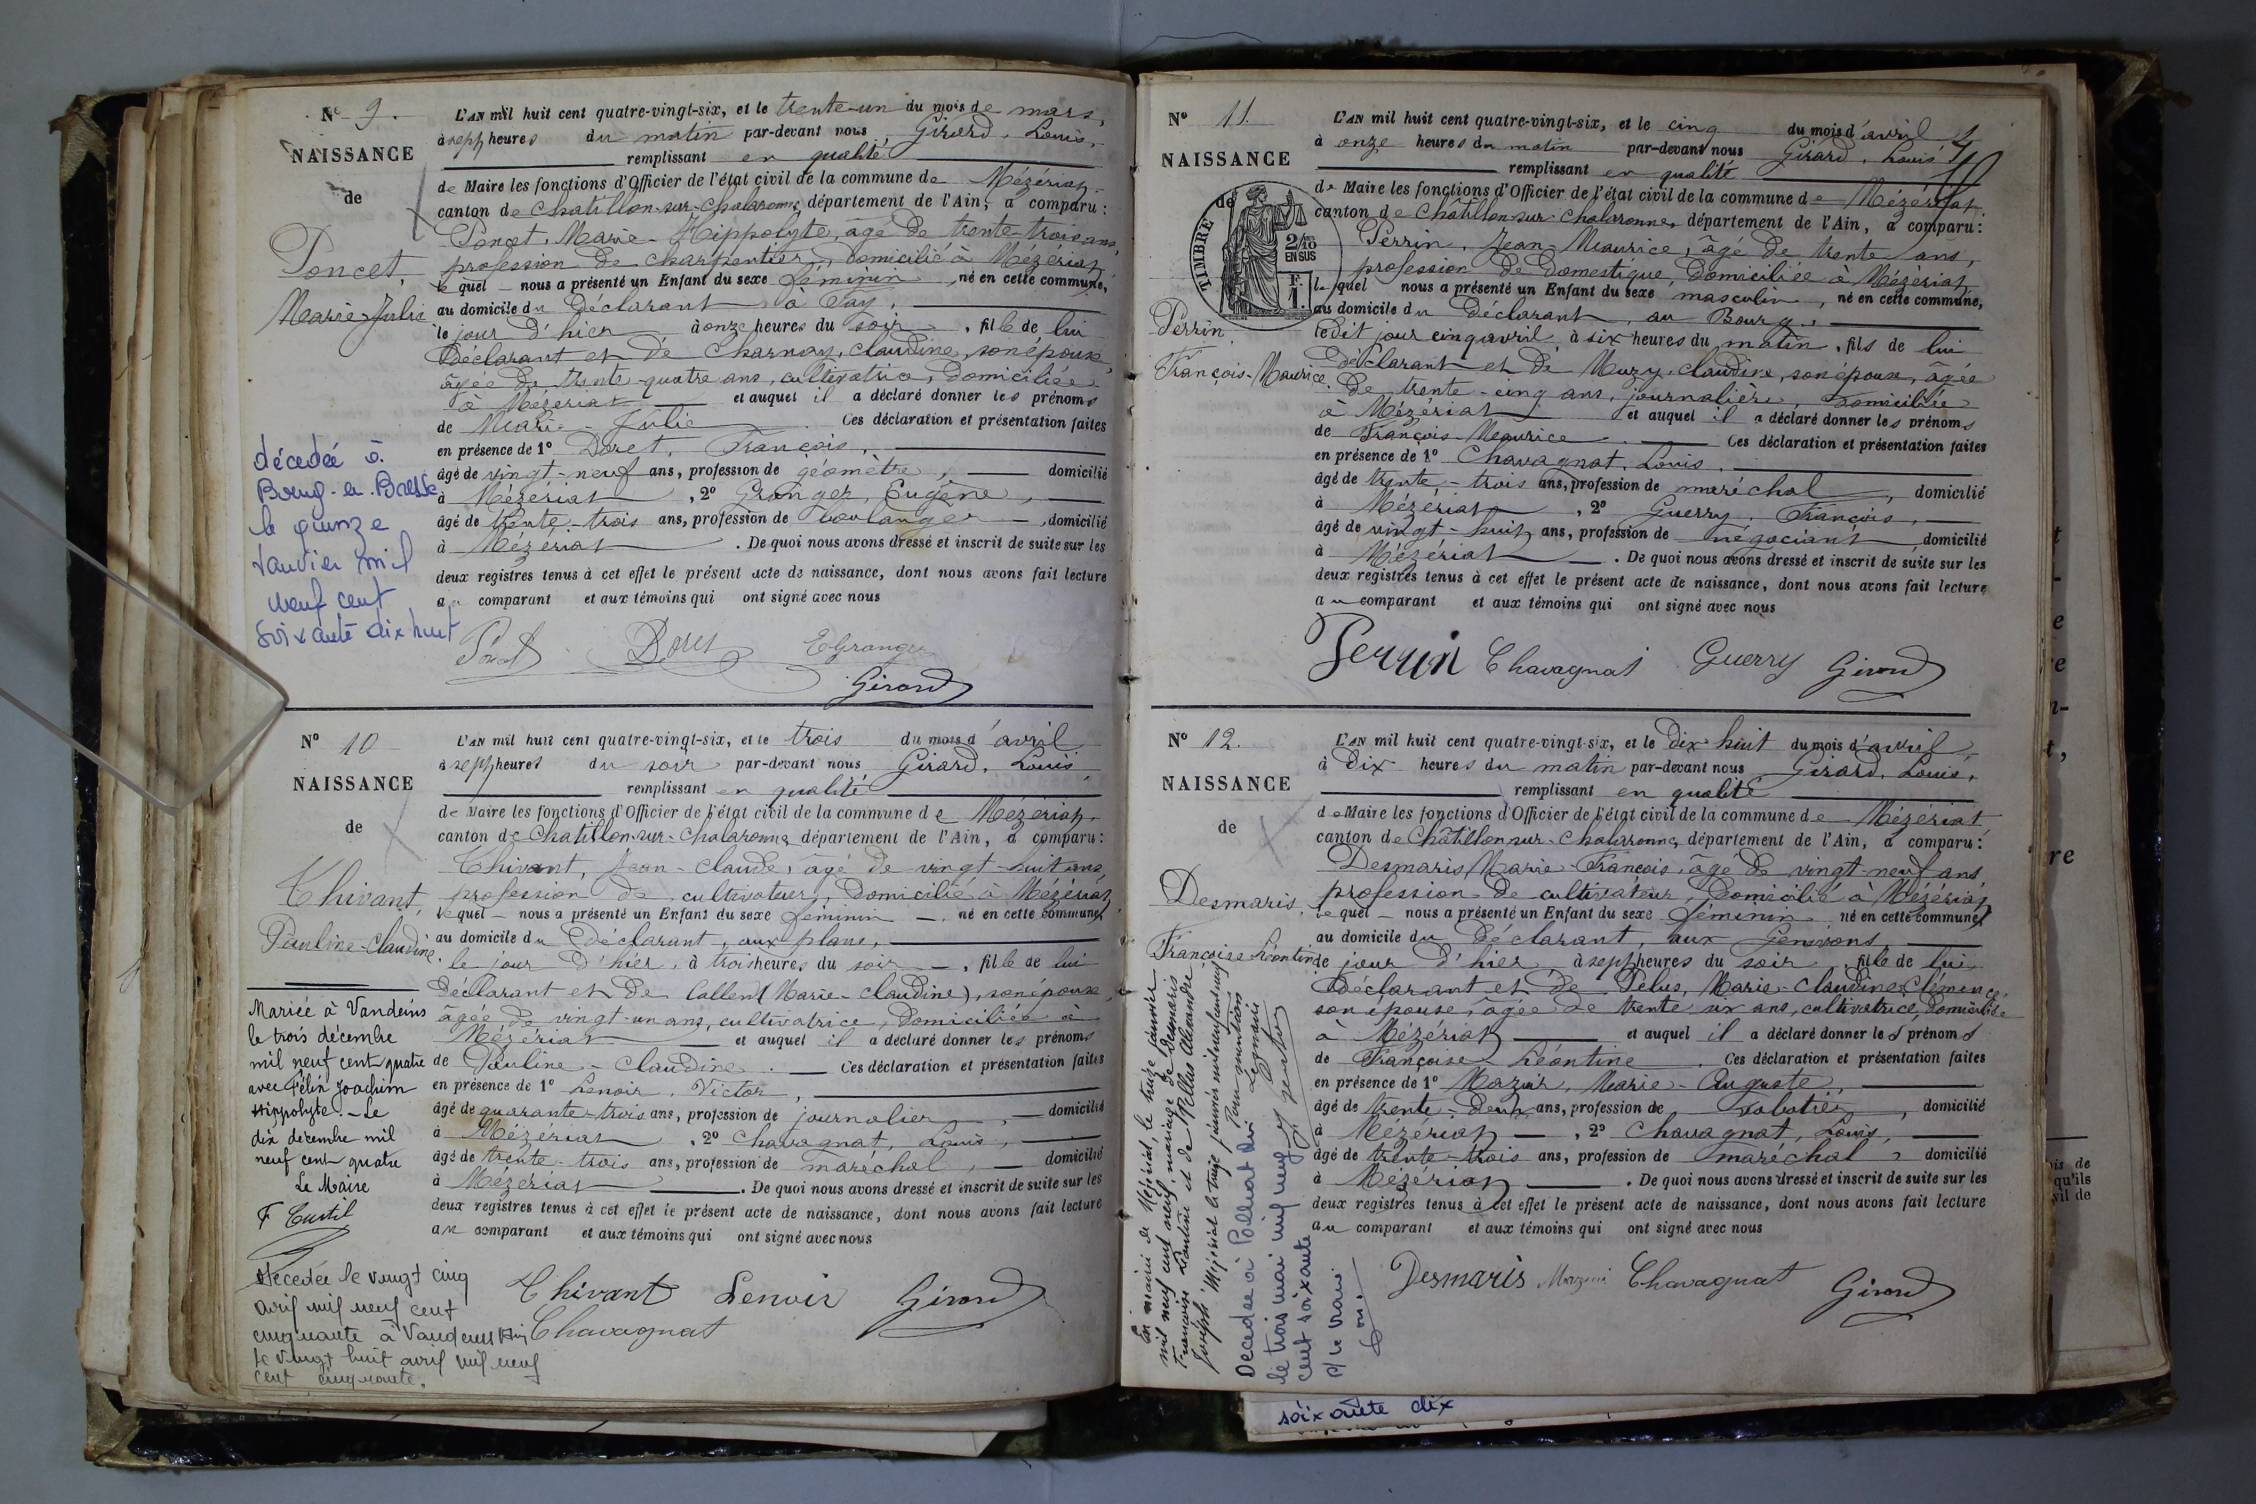 N° 9.
NAISSANCE
de
Poncet,
Marie-Julie
décédée à
Bourg-en-Bresse
le quinze
janvier mil
neuf cent
soixante dix huit
L'AN mil huit cent quatre-vingt-six, et le trente-un du mois de mars,
à sept heures du matin par-devant nous Girard, Louis,
remplissant en qualité
de Maire les fonctions d'Officier de l'état civil de la commune de Mézériat,
canton de Chatillon-sur-Chalaronne, département de l'Ain, a comparu :
Poncet, Marie-Hippolyte, âgé de trente-trois ans,
profession de charpentier, domicilié à Mézériat,
le quel nous a présenté un Enfant du sexe féminin, né en cette commune,
au domicile du déclarant à Say,
le jour d'hier à onze heures du soir, fille de lui
déclarant et de Charnay, Claudine, son épouse,
âgée de trente-quatre ans, cultivatrice, domiciliée
à Mézériat et auquel il a déclaré donner les prénoms
de Marie-Julie Ces déclaration et présentation faites
en présence de 1° Doret, François,
âgé de vingt-neuf ans, profession de géomètre, domicilié
à Mézériat, 2° Granger, Eugène,
âgé de trente-trois ans, profession de boulanger, domicilié
à Mézériat. De quoi nous avons dressé et inscrit de suite sur les
deux registres tenus à cet effet le présent acte de naissance, dont nous avons fait lecture
au comparant et aux témoins qui ont signé avec nous
Poncet Doret E Granger
Girard
N° 10
NAISSANCE
de
Chivant,
Pauline-Claudine.
Mariée à Vandeins
le trois décembre
mil neuf cent quatre
avec Félix Joachim
Hippolyte. - Le
dix décembre mil
neuf cent quatre
Le Maire
F Curtil
Décédée le vingt cinq
avril mil neuf cent
cinquante à Vandeins Ain
Le vingt huit avril mil neuf
cent cinquante.
L'AN mil huit cent quatre-vingt-six, et le trois du mois d'avril
à sept heures du soir par-devant nous Girard, Louis,
remplissant en qualité
de Maire les fonctions d'Officier de l'état civil de la commune de Mézériat,
canton de Chatillon-sur-Chalaronne, département de l'Ain, a comparu :
Chivant, Jean-Claude, âgé de vingt-huit ans,
profession de cultivateur, domicilié à Mézériat,
le quel nous a présenté un Enfant du sexe féminin, né en cette commune,
au domicile du déclarant, aux plans,
le jour d'hier, à trois heures du soir, fille de lui
déclarant et de Callend (Marie-Claudine), son épouse,
âgée de vingt-un ans, cultivatrice, domiciliée à
Mézériat et auquel il a déclaré donner les prénoms
de Pauline-Claudine. Ces déclaration et présentation faites
en présence de 1° Lenoir, Victor,
âgé de quarante-trois ans, profession de journalier, domicilié
à Mézériat, 2° Chavagnat, Louis,
âgé de trente-trois ans, profession de maréchal, domicilié
à Mézériat. De quoi nous avons dressé et inscrit de suite sur les
deux registres tenus à cet effet le présent acte de naissance, dont nous avons fait lecture
au comparant et aux témoins qui ont signé avec nous
Chivant Lenoir Girard
Chavagnat
N° 11.
NAISSANCE
de
TIMBRE
2/10
EN SUS
F.
1.
Perrin,
François-Maurice.
L'AN mil huit cent quatre-vingt-six, et le cinq du mois d'avril
à onze heures du matin par-devant nous Girard, Louis
remplissant en qualité
de Maire les fonctions d'Officier de l'état civil de la commune de Mézériat
canton de Châtillon-sur-Chalaronne, département de l'Ain, a comparu :
Perrin, Jean-Maurice, âgé de trente ans,
profession de domestique, domiciliée à Mézériat,
le quel nous a présenté un Enfant du sexe masculin, né en cette commune,
au domicile du déclarant, au Bourg,
ledit jour cinq avril à six heures du matin, fils de lui
déclarant et de Muzy, Claudine, son épouse, âgée
de trente-cinq ans, journalière, domiciliée
à Mézériat et auquel il a déclaré donner les prénoms
de François-Maurice. Ces déclaration et présentation faites
en présence de 1° Chavagnat, Louis,
âgé de trente-trois ans, profession de maréchal, domicilié
à Mézériat, 2° Guerry, François,
âgé de vingt-huit ans, profession de négociant domicilié
à Mézériat. De quoi nous avons dressé et inscrit de suite sur les
deux registres tenus à cet effet le présent acte de naissance, dont nous avons fait lecture
au comparant et aux témoins qui ont signé avec nous
Perrin Chavagnat Guerry Girard
N° 12.
NAISSANCE
de
Desmaris,
Françoise-Léontine
En mairie de Mézériat, le treize janvier
mil neuf cent neuf, mariage de Desmaris
Françoise Léontine et de Pellus Alexandre
Joseph. Mézériat le treize janvier mil neuf cent neuf
Pour mention
Décédée à Polliat Ain
le trois mai mil neuf
cent soixante
p/ le Maire
L'AN mil huit cent quatre-vingt-six, et le dix huit du mois d'avril,
à dix heures du matin par-devant nous Girard, Louis,
remplissant en qualité
de Maire les fonctions d'Officier de l'état civil de la commune de Mézériat
canton de Châtillon-sur-Chalaronne, département de l'Ain, a comparu :
Desmaris, Marie-François, âgé de vingt-neuf ans
profession de cultivateur, domicilié à Mézériat,
le quel nous a présenté un Enfant du sexe féminin né en cette commune,
au domicile du déclarant, aux Genivons
le jour d'hier à sept heures du soir, fille de lui
déclarant et de Pelus, Marie-Claudine-Clémence,
son épouse, âgée de trente six ans, cultivatrice, domiciliée
à Mézériat et auquel il a déclaré donner les prénoms
de Françoise Léontine. Ces déclaration et présentation faites
en présence de 1° Mazuir, Marie-Auguste,
âgé de trente-deux ans, profession de sabotier, domicilié
à Mézériat, 2° Chavagnat, Louis,
âgé de trente-trois ans, profession de maréchal, domicilié
à Mézériat. De quoi nous avons dressé et inscrit de suite sur les
deux registres tenus à cet effet le présent acte de naissance, dont nous avons fait lecture
au comparant et aux témoins qui ont signé avec nous
Desmaris Mazuir Chavagnat Girard
soixante dix